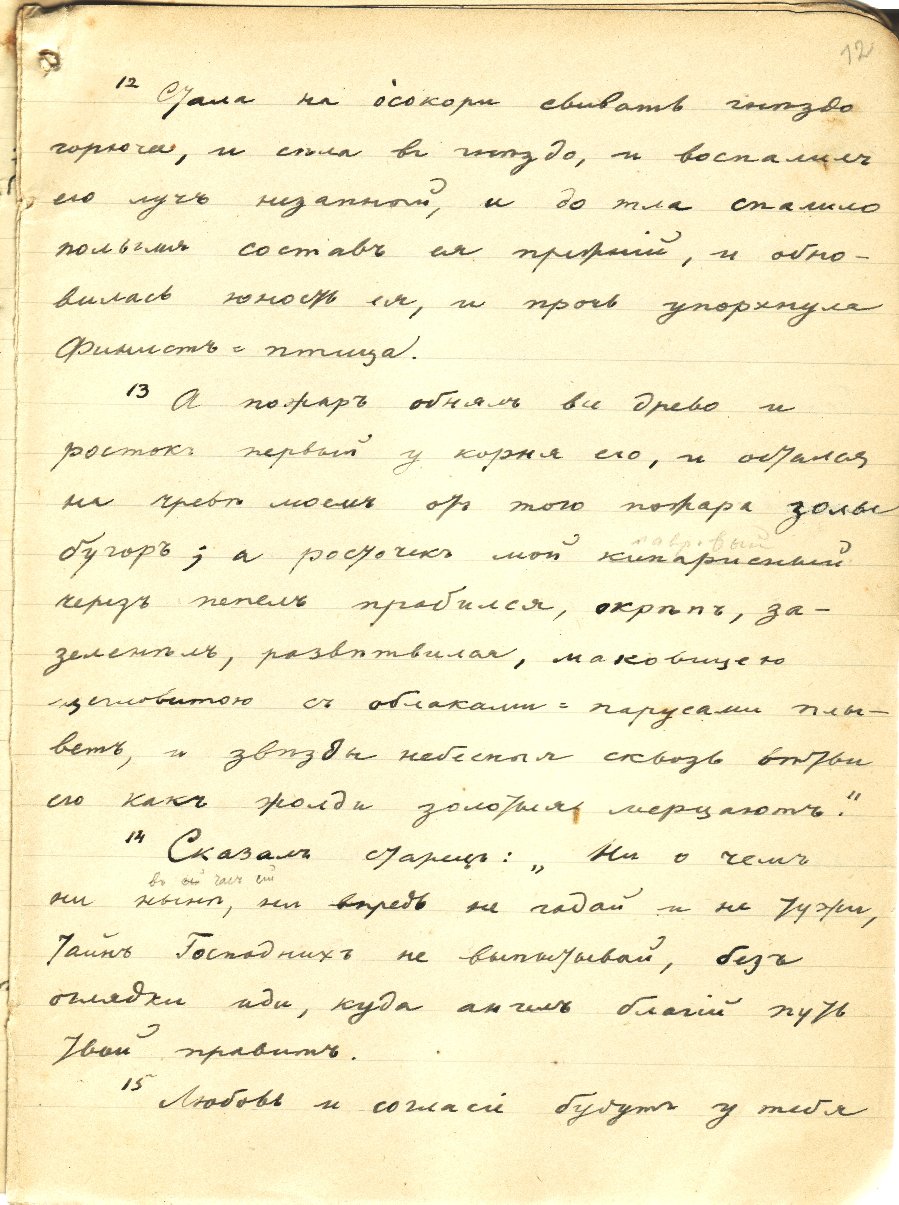 12
12 Стала на о́сокори свивать гнѣздо
горюче, и сѣла въ гнѣздо, и воспалилъ
его лучъ незапный, и до тла спалило
полымя составъ ея прежній, и обно-
вилась юность ея, и прочь упорхнула
Финистъ=птица.
13 А пожаръ обнялъ все древо и
ростокъ первый у корня его, и остался
на чревѣ моемъ отъ того пожара золы
бугоръ; а росточекъ мой кипарисный
лавровый
черезъ пепелъ пробился, окрѣпъ, за-
зеленѣлъ, развѣтвился, маковицею
съ облаками=парусами плы-
ветъ, и звѣзды небесныя сквозь вѣтви
его какъ жолди золотыя мерцаютъ."
14 Сказалъ старецъ: „Ни о чемъ
во ей часъ сій
ни нынѣ, ни впредь не гадай и не тужи,
тайнъ Господнихъ не выпытывай, безъ
оглядки иди, куда ангелъ благій путь
твой правитъ.
15 Любовь и согласіе будутъ у тебя